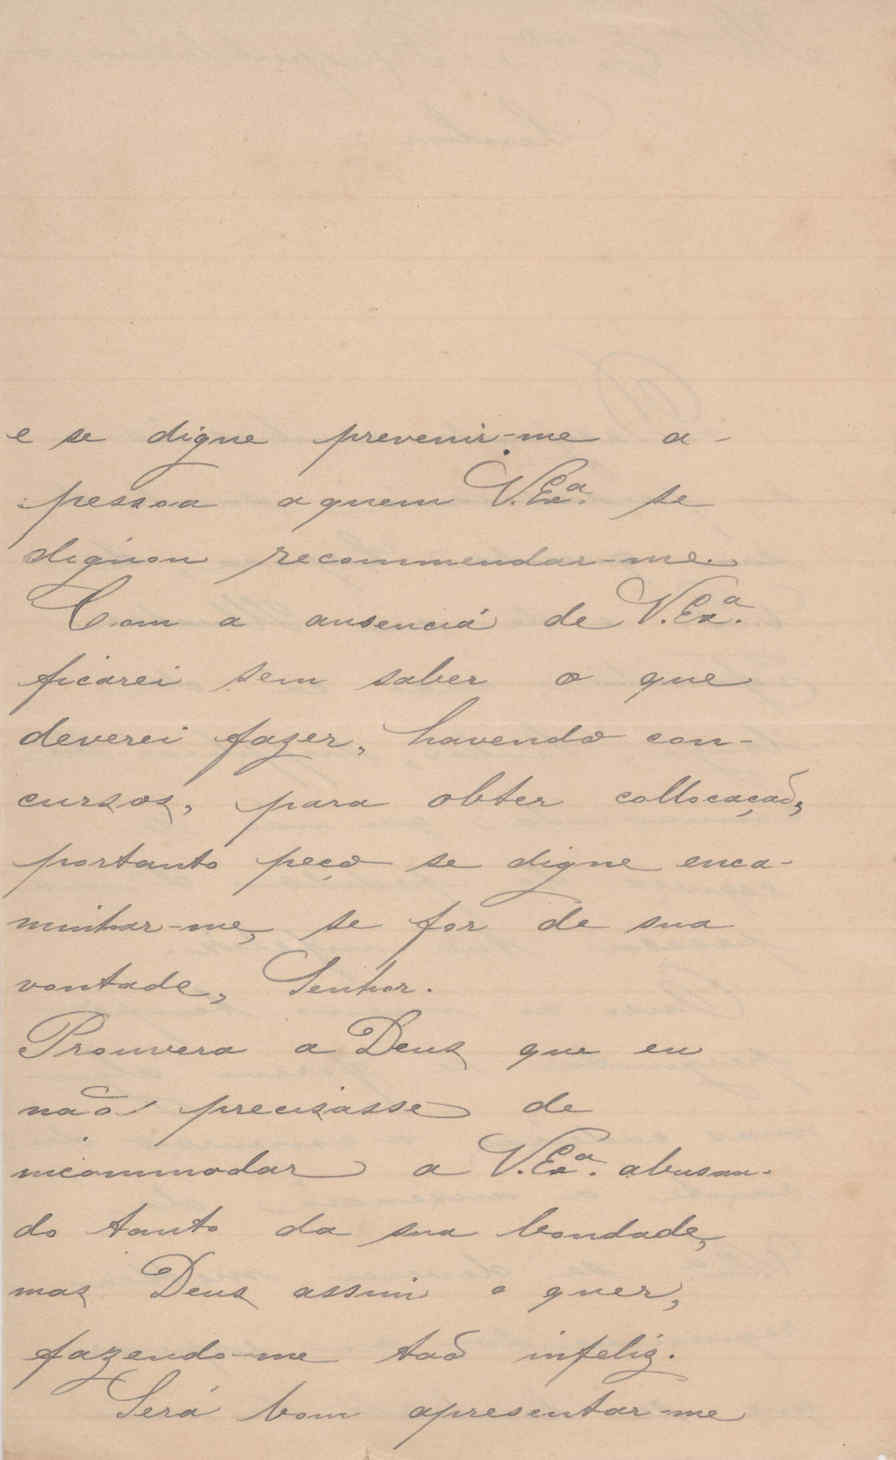 e se digne prevenir-me a-
pessoa aquem V.Exª. se
dignou recommendar-me.
Com a ausencia de V.Exª.
ficarei sem saber o que
deverei fazer, havendo con-
cursos, para obter collocação,
portanto peço se digne enca-
minhar-me, se for de sua
vontade, Senhor.
Prouvera a Deus que eu
não precisasse de
incommodar a V.Exª. abusan-
do tanto da sua bondade,
mas Deus assim o quer,
fazendo-me tão infeliz.
Será bom apresentar-me